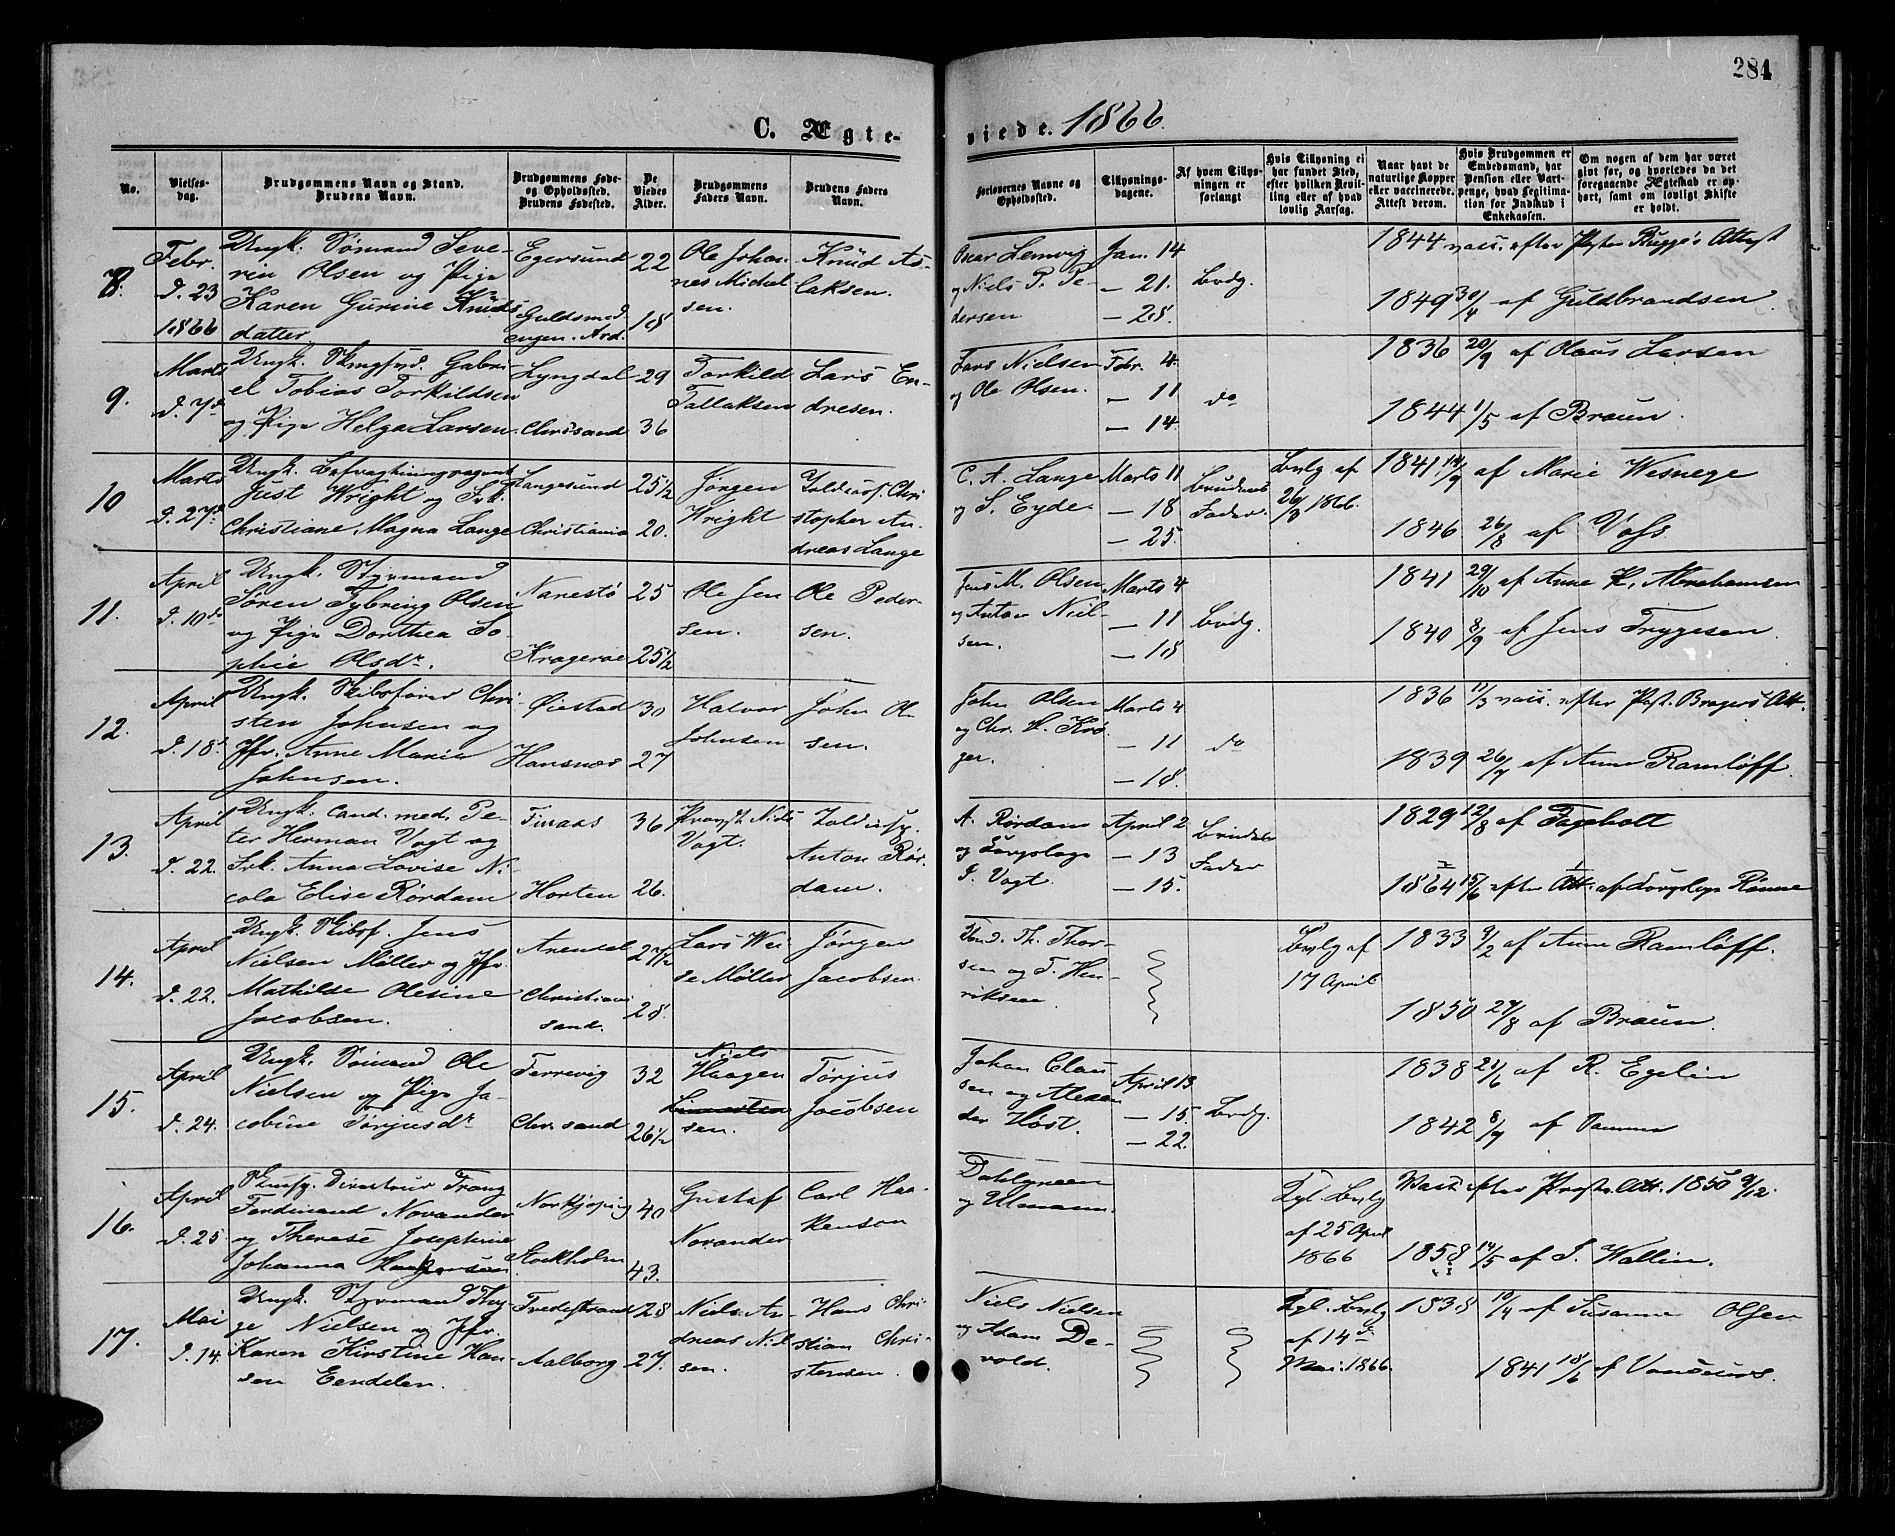 284
C. Ægte-
viede. 1866.
No.
Vielses-
dag.
Brudgommens Navn og Stand.
Brudens Navn.
Brudgommens Føde-
og Opholdssted.
Brudens Fødested.
De
Viedes
Alder.
Brudgommens
Faders Navn.
Brudens Faders
Navn.
Forlovernes Navne og
Opholdssted.
Tillysnings-
dagene.
Af hvem Tillys-
ningen er
forlangt
Hvis Tillysning ei
har fundet Sted,
efter hvilken Bevil-
ling eller af hvad
lovlig Aarsag.
Naar havt de
naturlige Kopper
eller vaccinerede.
Attest derom.
Hvis Brudgommen er
Embedsmand, har
Pension eller Vart-
penge, hvad Legitima-
tion for Indskud i
Enkekassen.
Om nogen af dem har været
givt før, og hvorledes da det
foregaaende Ægteskab er op-
hørt, samt om lovligt Skifte
er holdt.
8.
Febr.
d. 23
1866
Ungk. Sømand Seve-
rin Olsen og Pige
Karen Gurine Knuds-
datter
Egersund
Guldsmed
engen. Ard.
22
18
Ole Johan-
nes Michel-
sen.
Knud As-
laksen.
Oscar Lemvig
og Niels P. Pe-
dersen
Jan. 14
— 21.
— 28.
Brdg.
1844 vacc. efter Præsten Rugge's Attest
1849 30/4 af Guldbrandsen
9.
Marts
d. 7de
Ungk. Gabri-
el Tobias Torkildsen
og Pige Helga Larsen.
Lyngdal
Chrsand
29
36
Torkild
Tallaksen
Lars En-
dresen.
Lars Nielsen
og Ole Olsen.
Febr. 4.
— 11
— 14.
do
1836 20/9 af Olaus Larsen
1844 1/5 af Braun.
10
Marts
d. 27de
Ungk. Befragtningsagent
Just Wright og Frk.
Christiane Magna Lange
Langesund
Christiania
25 1/2
20.
Jørgen
Wright
Toldinsp. Chri-
stopher An-
dreas Lange
C. A. Lange
og S. Eyde
Marts 11
— 18
— 25.
Brudens
Fader.
Bvlg af
26/3 1866.
1841 14/9 af Marie Wesnege
1846 26/8 af Voss.
11.
April
d. 10de
Ungk. Styrmand
Søren Tybring Olsen
og Pige Dorthea So-
phie Olsdr.
Narestø
Kragerøe
25
25 1/2
Ole Jen-
sen.
Ole Peder-
sen.
Jens M. Olsen
og Anton Niel-
sen.
Marts 4
— 11
— 18
Brdg.
1841 29/10 af Anne K. Abrahamsen
1840 8/9 af Jens Trygesen.
12.
April
d. 18.
Ungk. Skibsfører Chri-
sten Johnsen og
Jfr. Anne Maria
Johnsen.
Øiestad
Hansnæs
30
27
Halvor
Johnsen
John Ol-
sen.
John Olsen
og Chr. H. Krø-
ger.
Marts 4
— 11
— 18.
do
1836 11/3 vacc. efter Præst. Att.
1839 26/7 af Anne Ramløff.
13.
April
d. 22.
Ungk. cand. med. Pe-
ter Herman Vogt og
Frk. Anna Lovise Ni-
cola Elise Rørdam
Finaas
Horten
36
26.
Provst Niels
Vogt.
Toldinsp.
Anton Rør-
dam.
A. Rørdam
og Sorgsloge
J. Vogt.
April 2
— 13
— 15.
Brudens
Fader
1829 12/8 af Fageholt
1864 15/6 efter Att. af Rønne
14.
April
d. 22.
Ungk. Skibsf. Jens
Nielsen Møller og Jfr.
Mathilde Olesine
Jacobsen.
Arendal
Christian-
sand.
27 1/2
28.
Lars Wei-
se Møller
Jørgen
Jacobsen.
Th. Thor-
sen og T. Hen-
riksen
Bvlg af
17 April
1833 9/2 af Anne Ramløff.
1850 27/8 af Braun.
15.
April
d. 24.
Ungk. Sømand Ole
Nielsen og Pige Ja-
cobine Tørjusdr
Terrevig
Chr. sand
32
26 1/2
Niels
Haagen-
sen.
Tørjus
Jacobsen
Johan Clau-
sen og Alexan-
der Høst.
April 13
— 15.
— 22.
Brdg.
1838 21/6 af R. Egelin
1842 8/9 af Tamma
16.
April
d. 25.
Directeur Franz
Ferdinand Norander
og Therese Josephine
Johanna
Norkjøping
Stockholm
40
43.
Gustaf
Norander
Carl Haa-
kenson
Dahlgreen
og Ulmann.
Kgl. Bvlg
af 25 April
1866
Vacc. efter Præste Att. 1850 9/12.
1858 14/5 af J. Wallin.
17.
Mai
d. 14.
Ungk. Styrmand Thy-
ge Nielsen og Jfr.
Karen Kirstine Han-
sen Eendelen.
Tvedestrand
Aalborg
28
27.
Niels An-
dreas Niel-
sen.
Hans Chri-
stian Chri-
stensen.
Niels Nielsen
og Adam De-
vold.
Kgl. Bvlg
af 14de
Mai. 1866.
1838 10/4 af Susanne Olsen
1841 18/6 af